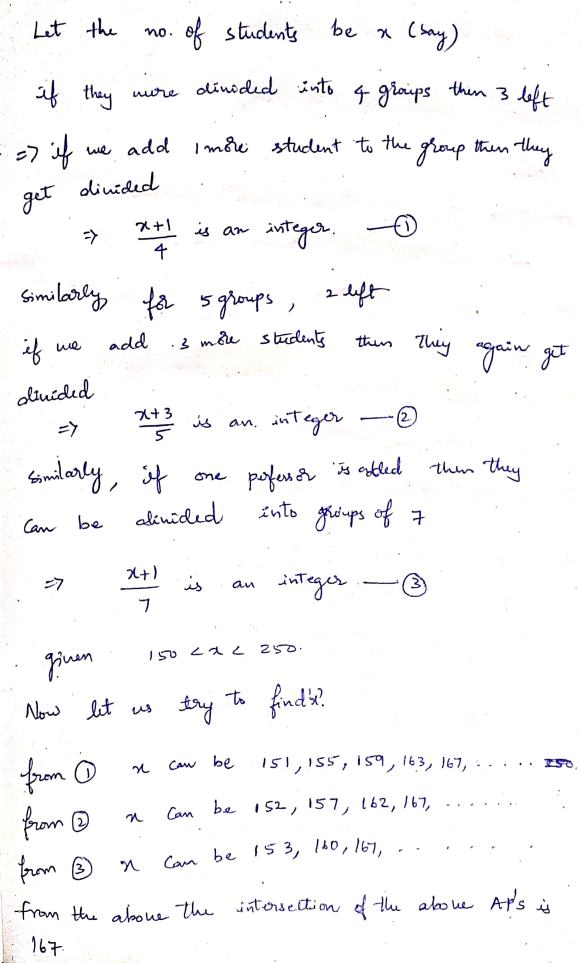 Let the no. of students be x (say)
if they were divided into 4 groups then 3 left
=> if we add 1 more student to the group then they
get divided
=> x+1/4 is an integer. —①
Similarly for 5 groups, 2 left
if we add 3 more students then they again get
divided
=> x+3/5 is an integer —②
Similarly, if one pofessor is added then they
Can be divided into groups of 7
=> x+1/7 is an integer —③
given 150 < x < 250.
Now let us try to find 'x'.
from ① x can be 151, 155, 159, 163, 167, ..... 250.
from ② x Can be 152, 157, 162, 167, .......
from ③ x Can be 153, 160, 167, .....
from the above the intersection of the above AP's is
167